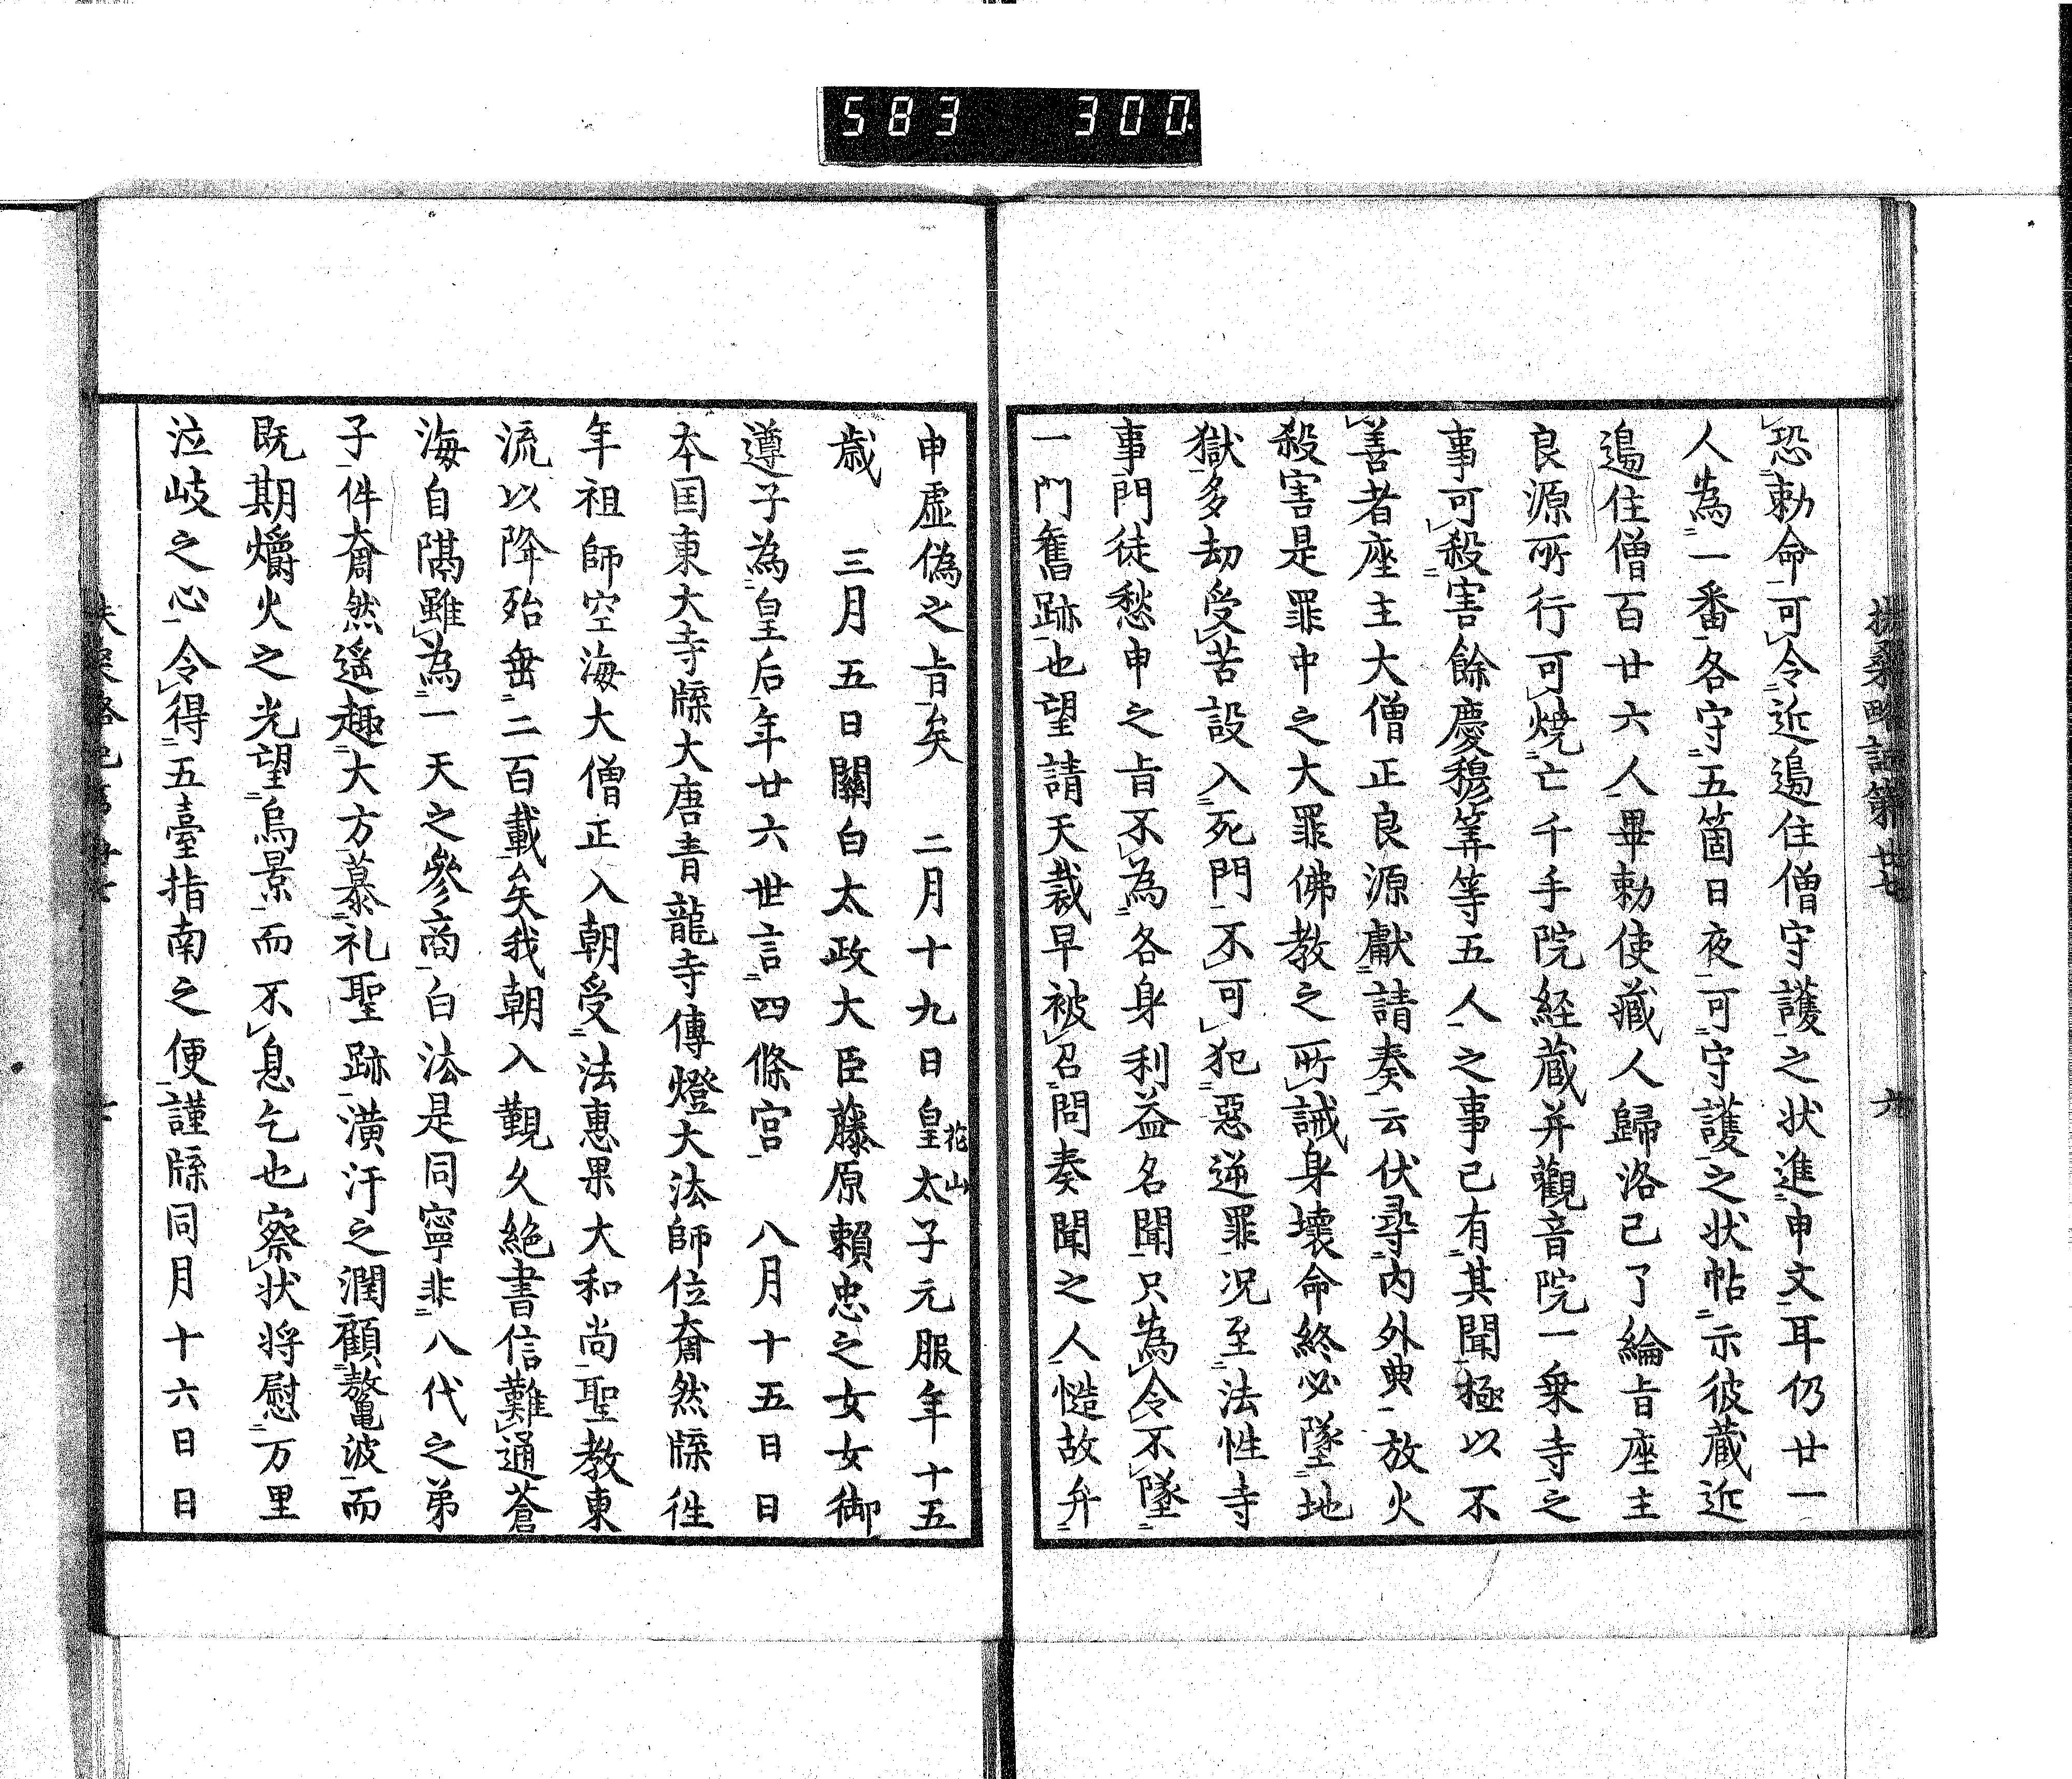 583 300
扶桑略記第廿七 六
恐勅命可令近邊住僧守護之状進申文耳仍廿一
人為一番各守五箇日夜可守護之状帖示彼蔵近
邊住僧百廿六人畢勅使蔵人歸洛已了綸旨座主
良源所行可焼亡千手院経蔵并觀音院一乗寺之
事可殺害餘慶穆筭等五人之事已有其聞極以不
善者座主大僧正良源獻請奏云伏尋内外典放火
殺害是罪中之大罪佛教之所誡身壊命終必墜地
獄多劫受苦設入死門不可犯惡逆罪况至法性寺
事門徒愁申之旨不為各身利益名聞只為令不墜
一門舊跡也望請天裁早被召問奏聞之人慥故弁
申虛偽之旨矣 二月十九日皇太子花山元服年十五
歳 三月五日關白太政大臣藤原頼忠之女女御
遵子為皇后年廿六世言四條宮 八月十五日日
本国東大寺牒大唐青龍寺傳燈大法師位奝然牒往
年祖師空海大僧正入朝受法惠果大和尚聖教東
流以降殆垂二百載矣我朝入覲久絶書信難通蒼
海自隔雖為一天之參商白法是同寧非八代之弟
子件奝然遥趣大方慕礼聖跡潢汙之潤顧鼇波而
既期爝火之光望烏景而不息乞也察状将慰万里
泣岐之心令得五臺指南之便謹牒同月十六日日